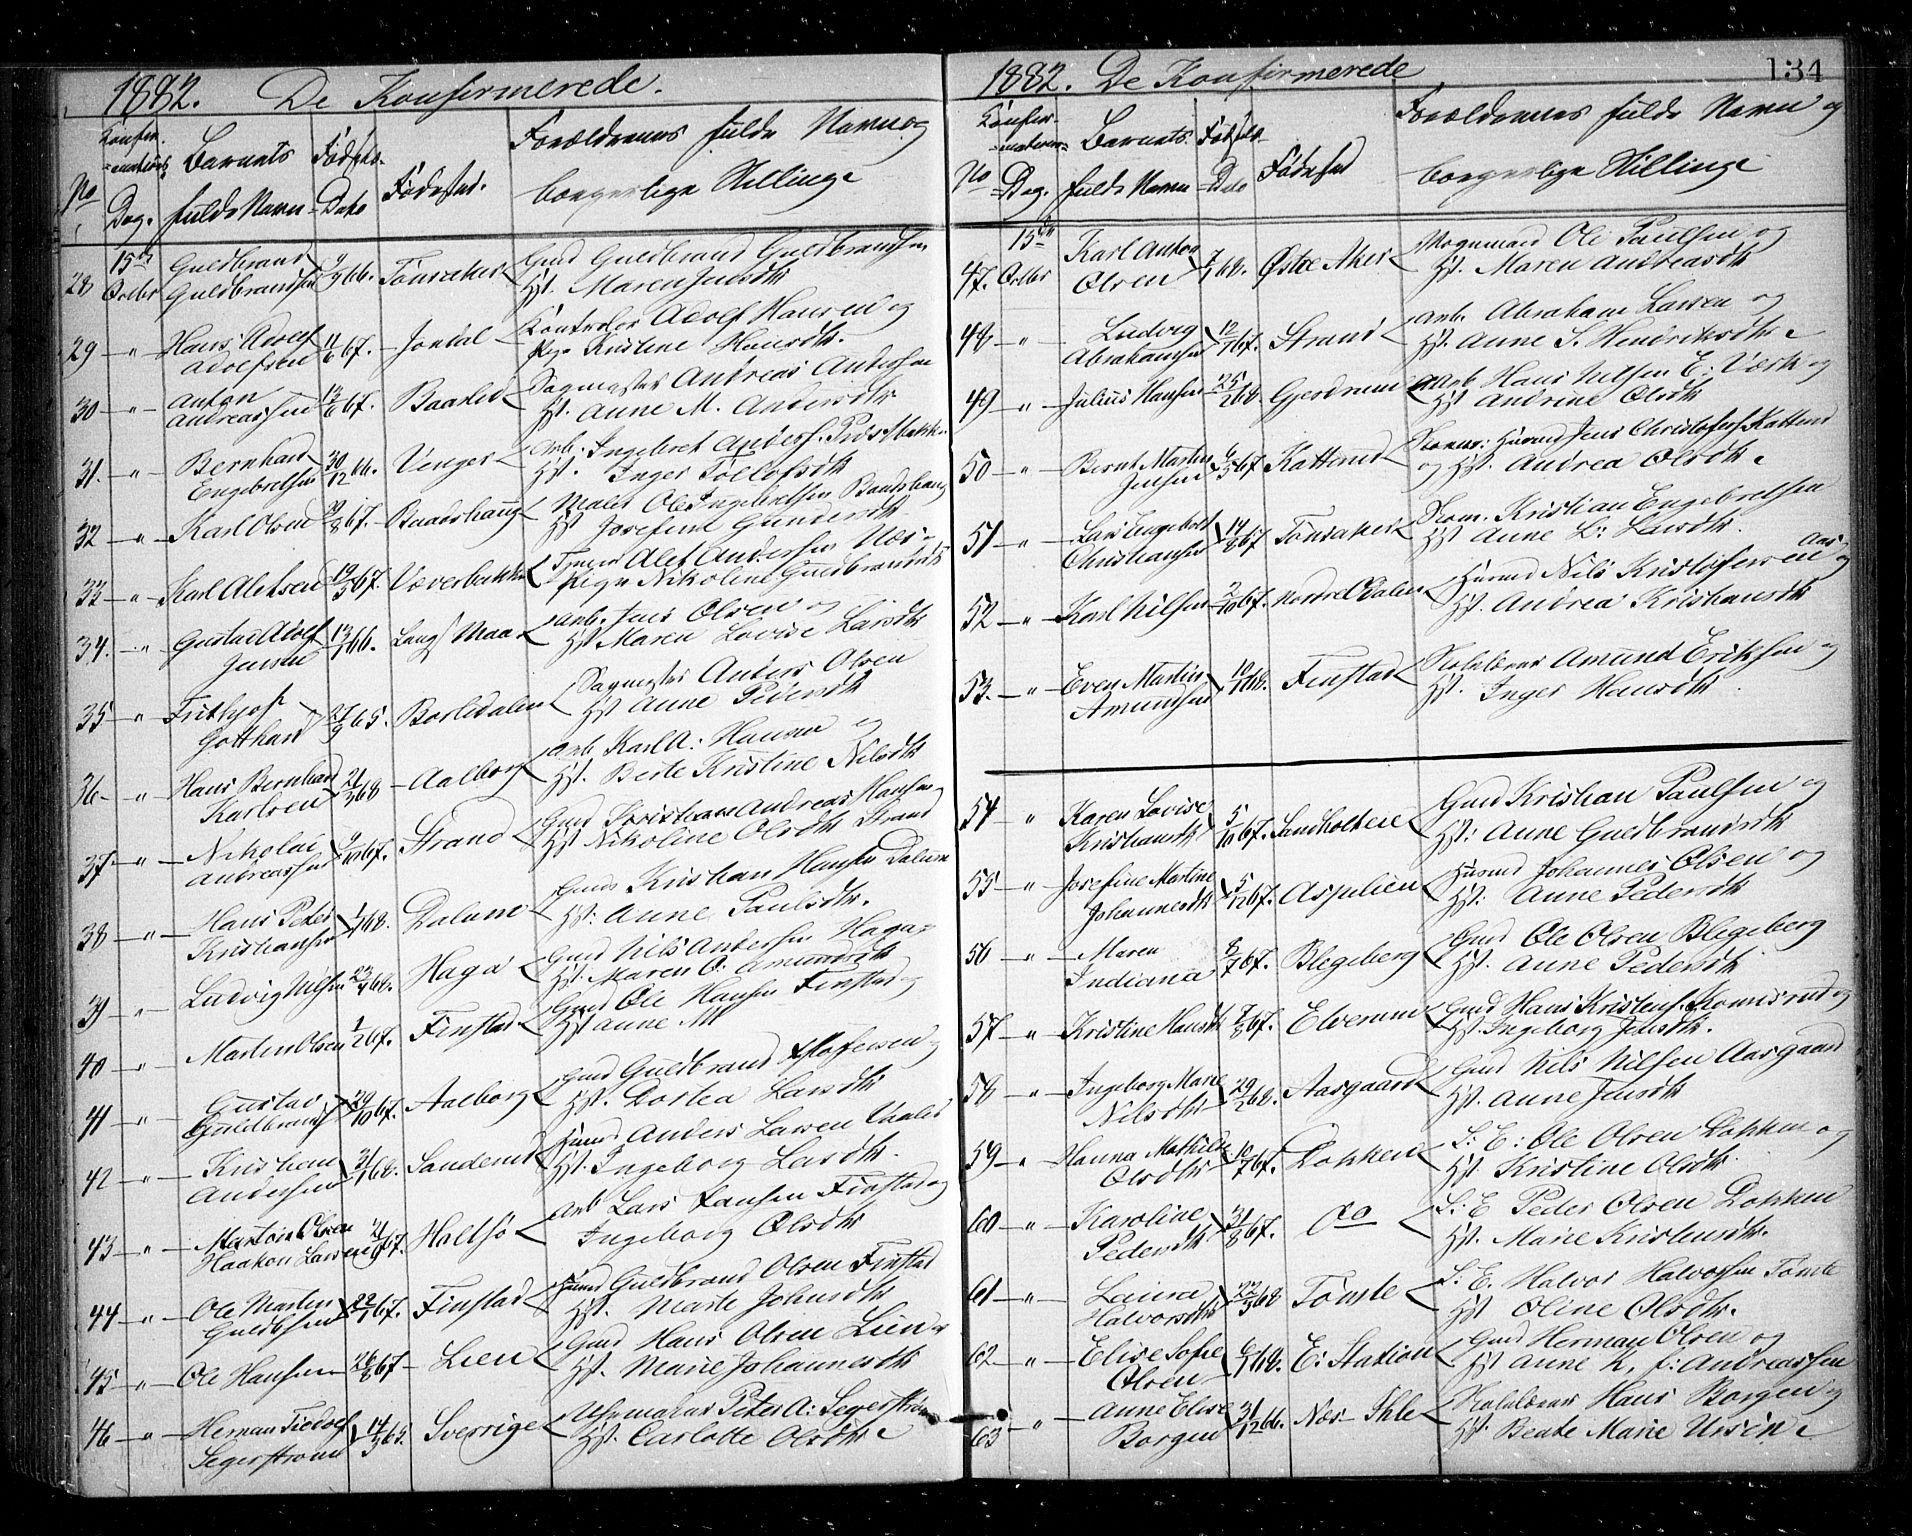 1882. De Konfirmerede.
No Konfirmations Dag. Barnets fulde Navn Fødsels Dato Fødested. Forældrenes fulde Navn og borgerlige Stilling
28 15de Octbr Guldbrand Guldbrandsen 66. Tonsaker Gmd Guldbrand Guldbrandsen
Hst. Maren Jensdtr
29 -"- Hans Adolf Adolfsen 11/6 67. Jondal Kontrolør Adolf Hansen og
Pige Kristine Hansdtr.
30 -"- Anton Andreassen 13/6 67. Baastad Sagmester Andreas Andersen
Hst. Anne M. Andersdtr
31. -"- Bernhard Engebretsen 30/12 66. Venger Arb. Ingebret Anders.
Hst. Inger Tollofsdtr
32 -"- Karl Olsen 67. Baadshaug Maler Ole Ingebretsen Baadshaug
Hst Josefine Gundersdtr
33 -"- Karl Alefsen 19/5 67. Væverbakken Alef Andersen
Pige Nikoline Guldbrandsdt
34. -"- Gustav Adolf Jensen 13/7 66. Arb. Jens Olsen og
Hst. Maren Lovise Larsdtr
35 -"- Frithjof Gotthard 27/9 65 Borledalen Sagmester Anders Olsen
Hst Anne Pedersdtr
36 -"- Hans Bernhard Karlsen 21/3 68 Aalborg Arb Karl A: Hansen og
Hst. Berte Kristine Nilsdtr
37 -"- Nikolai Andreassen 9/10 67. Strand Gmd Kristian Andreas Hansen
Hst Nikoline Olsdtr Strand
38 -"- Hans Peter Kristiansen 68. Dalum Gmd Kristian Hansen Dalum
Hst: Anne Paulsdtr.
39 -"- Ludvig Nilsen 23/4 68. Haga Gmd Nils Andersen Haga
Hst: Maren O. Amundsdtr
40 -"- Martin Olsen 1/2 67. Finstad Gmd Ole Hansen Finstad og
Hst Anne M
41 -"- Gustav Guldbrands 29/10 67. Aalborg Gmd Guldbrand Kristofersen
Hst. Dortea Larsdtr
42 -"- Kristian Andersen 31/1 68. Sanderud Husmd Anders Larsen
Hst. Ingeborg Larsdtr.
43 -"- Martin Olsen Haakon Larsen 67. Holtsø Arb Lars Hansen Finstad og
Ingeborg Olsdtr
44 -"- Ole Martin Guldbsen 22/7 67. Finstad Husmd Guldbrand Olsen Finstad
Hst. Marte Johnsdtr
45 -"- Ole Hansen 26/8 67 Lien Gmd Hans Olsen Lien
Hst. Marie Johannesdtr
46 -"- Herman Tiodolf Segerstrøm 14/3 68. Sverrige Uhrmaker Peter A: Segerstrøm
Hst. Carlotte Olsdtr
1882. De Konfirmerede 134
No Konfirmations Dag. Barnets fulde Navn Fødsels Dato Fødested Forældrenes fulde Navn og borgerlige Stilling
47. 15de Octbr Karl Anton Olsen 68. Østre Aker Vognmand Ole Paulsen og
Hst. Maren Andreasdtr
48 -"- Ludvig Abrahamsen 12/1 67. Strand Arb. Abraham Larsen og
Hst. Anne S. Hendriksdtr
49 -"- Julius Hansen 25/2 68 Gjerdrum Arb Hans Nilsen E. Værk og
Hst Andrine Olsdtr
50 -"- Bernt Martin Jensen 6/5 67. Katterud Husmd Jens Christofers Katterud
og Hst. Andrea Olsdtr
51 -"- Lars Engebret Christiansen 14/8 67 Tonsaker Skom. Kristian Engebretsen
Hst Anne L: Larsdtr.
52 -"- Karl Nilsen 2/10 67. Nordre Dalen Husmd Nils Kristofersen Aas og
Hst. Andrea Kristiansdtr
53 -"- Even Martin Amundsen 10/1 68. Finstad Skolelærer Amund Eriksen og
Hst. Inger Hansdtr
54 " Karen Lovise Kristiansdtr 5/10 67. Sandholtet Gmd Kristian Paulsen og
Hst: Anne Guldbrandsdtr
55 -"- Josefine Martine Johannesdtr 5/12 67. Asplien Husmd Johannes Olsen og
Hst: Anne Pedersdtr
56 -"- Maren Indiana 8/7 67. Blegeberg Gmd Ole Olsen Blegeberg
Hst. Anne Pedersdtr
57 -"- Kristine Hansdtr 7/8 67. Elverum Gmd Hans Kristens. Komisrud og
Hst Ingeborg Jensdtr.
58 -"- Ingeborg Marie Nilsdtr 29/2 68. Aasgaard Gmd Nils Nilsen Aasgaard
Hst. Anne Jensdtr
59 -"- Hanna Mathilde Olsdtr 10/7 67. Dokken S: E: Ole Olsen Dokken og
Hst. Kristine Olsdtr.
60 -"- Karoline Pedersdtr 31/8 67. Do S. E Peder Olsen Dokken
Hst. Marie Kristensdtr.
61 -"- Laura Halvorsdtr 22/3 68 Tømte S. E. Halvor Halvorsen Tømte
Hst Oline Olsdtr.
62 -"- Elise Sofie Olsen 6/7 68. E: Station Gmd Herman Olsen og
Hst Anne K. f: Andreassen
63 -"- Anne Elise Borgen 31/12 66. Næs Skolelærer Hans Borgen og
Hst. Beate Marie Ursin